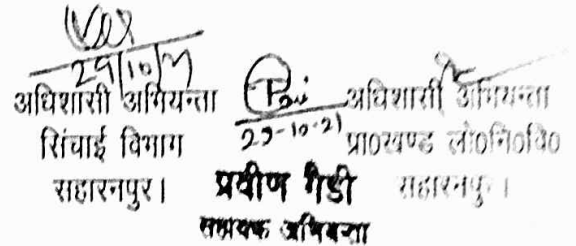 29/10/21
अधिशासी अभियन्ता
सिंचाई विभाग
सहारनपुर।
29-10-21
प्रवीण गैडी
सहायक अभियन्ता
अधिशासी अभियन्ता
प्रा०खण्ड लो०नि०वि०
सहारनपुर।